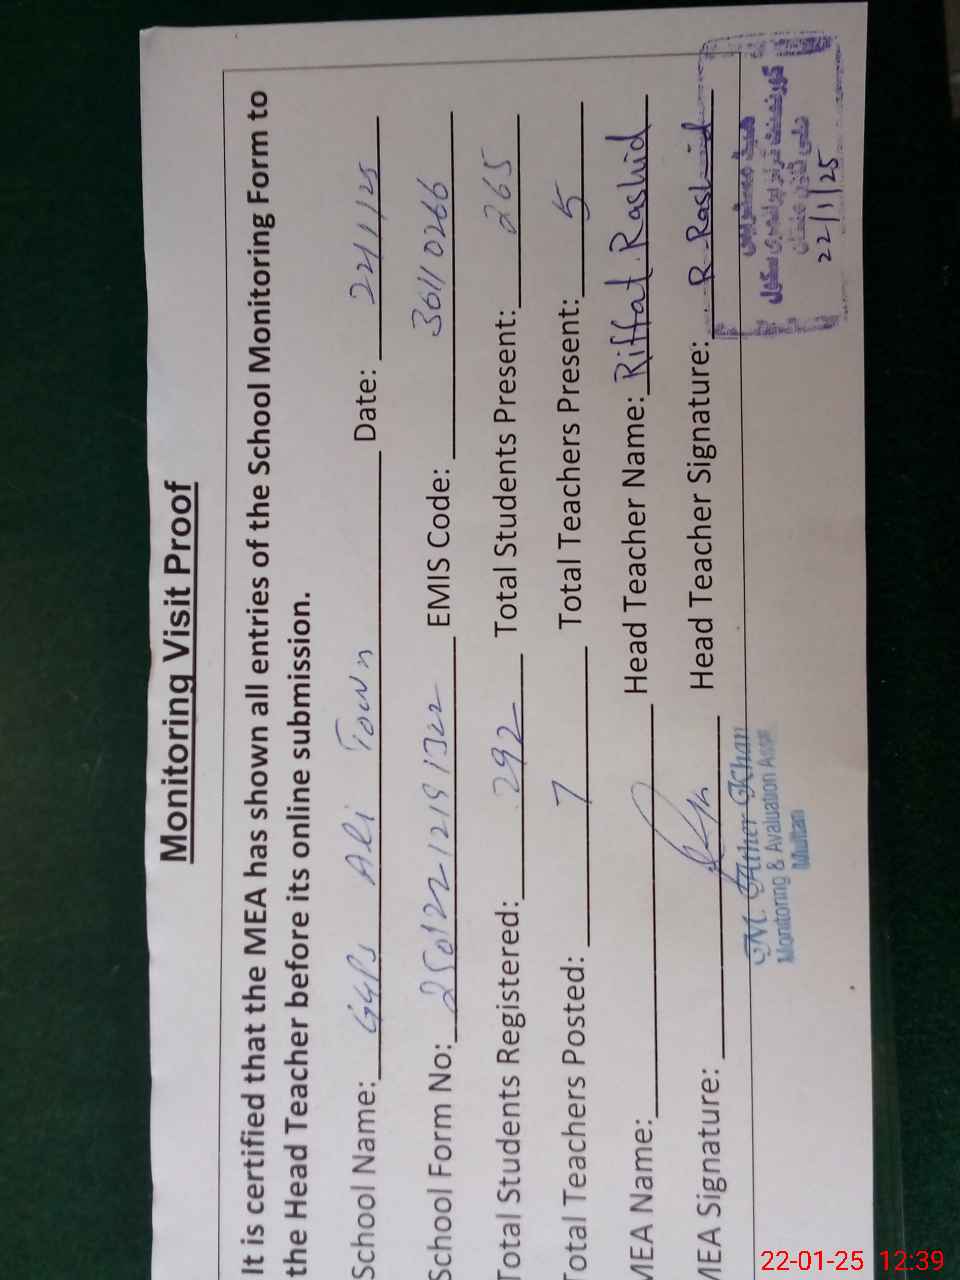 Monitoring Visit Proof
It is certified that the MEA has shown all entries of the School Monitoring Form to
the Head Teacher before its online submission.
School Name: GGPS Ali Town Date: 22/1/25
School Form No: 250122 1219 1322 EMIS Code: 36110266
Total Students Registered: 292 Total Students Present: 265
Total Teachers Posted: 7 Total Teachers Present: 5
MEA Name: Head Teacher Name: Riffat Rashid
MEA Signature: Head Teacher Signature: R. Rashid
M. Ather Khan
Monitoring & Evaluation Asst
Multan
ہیڈ مسٹریس
گورنمنٹ گرلز پرائمری سکول
22/1/25
22-01-25 12:39